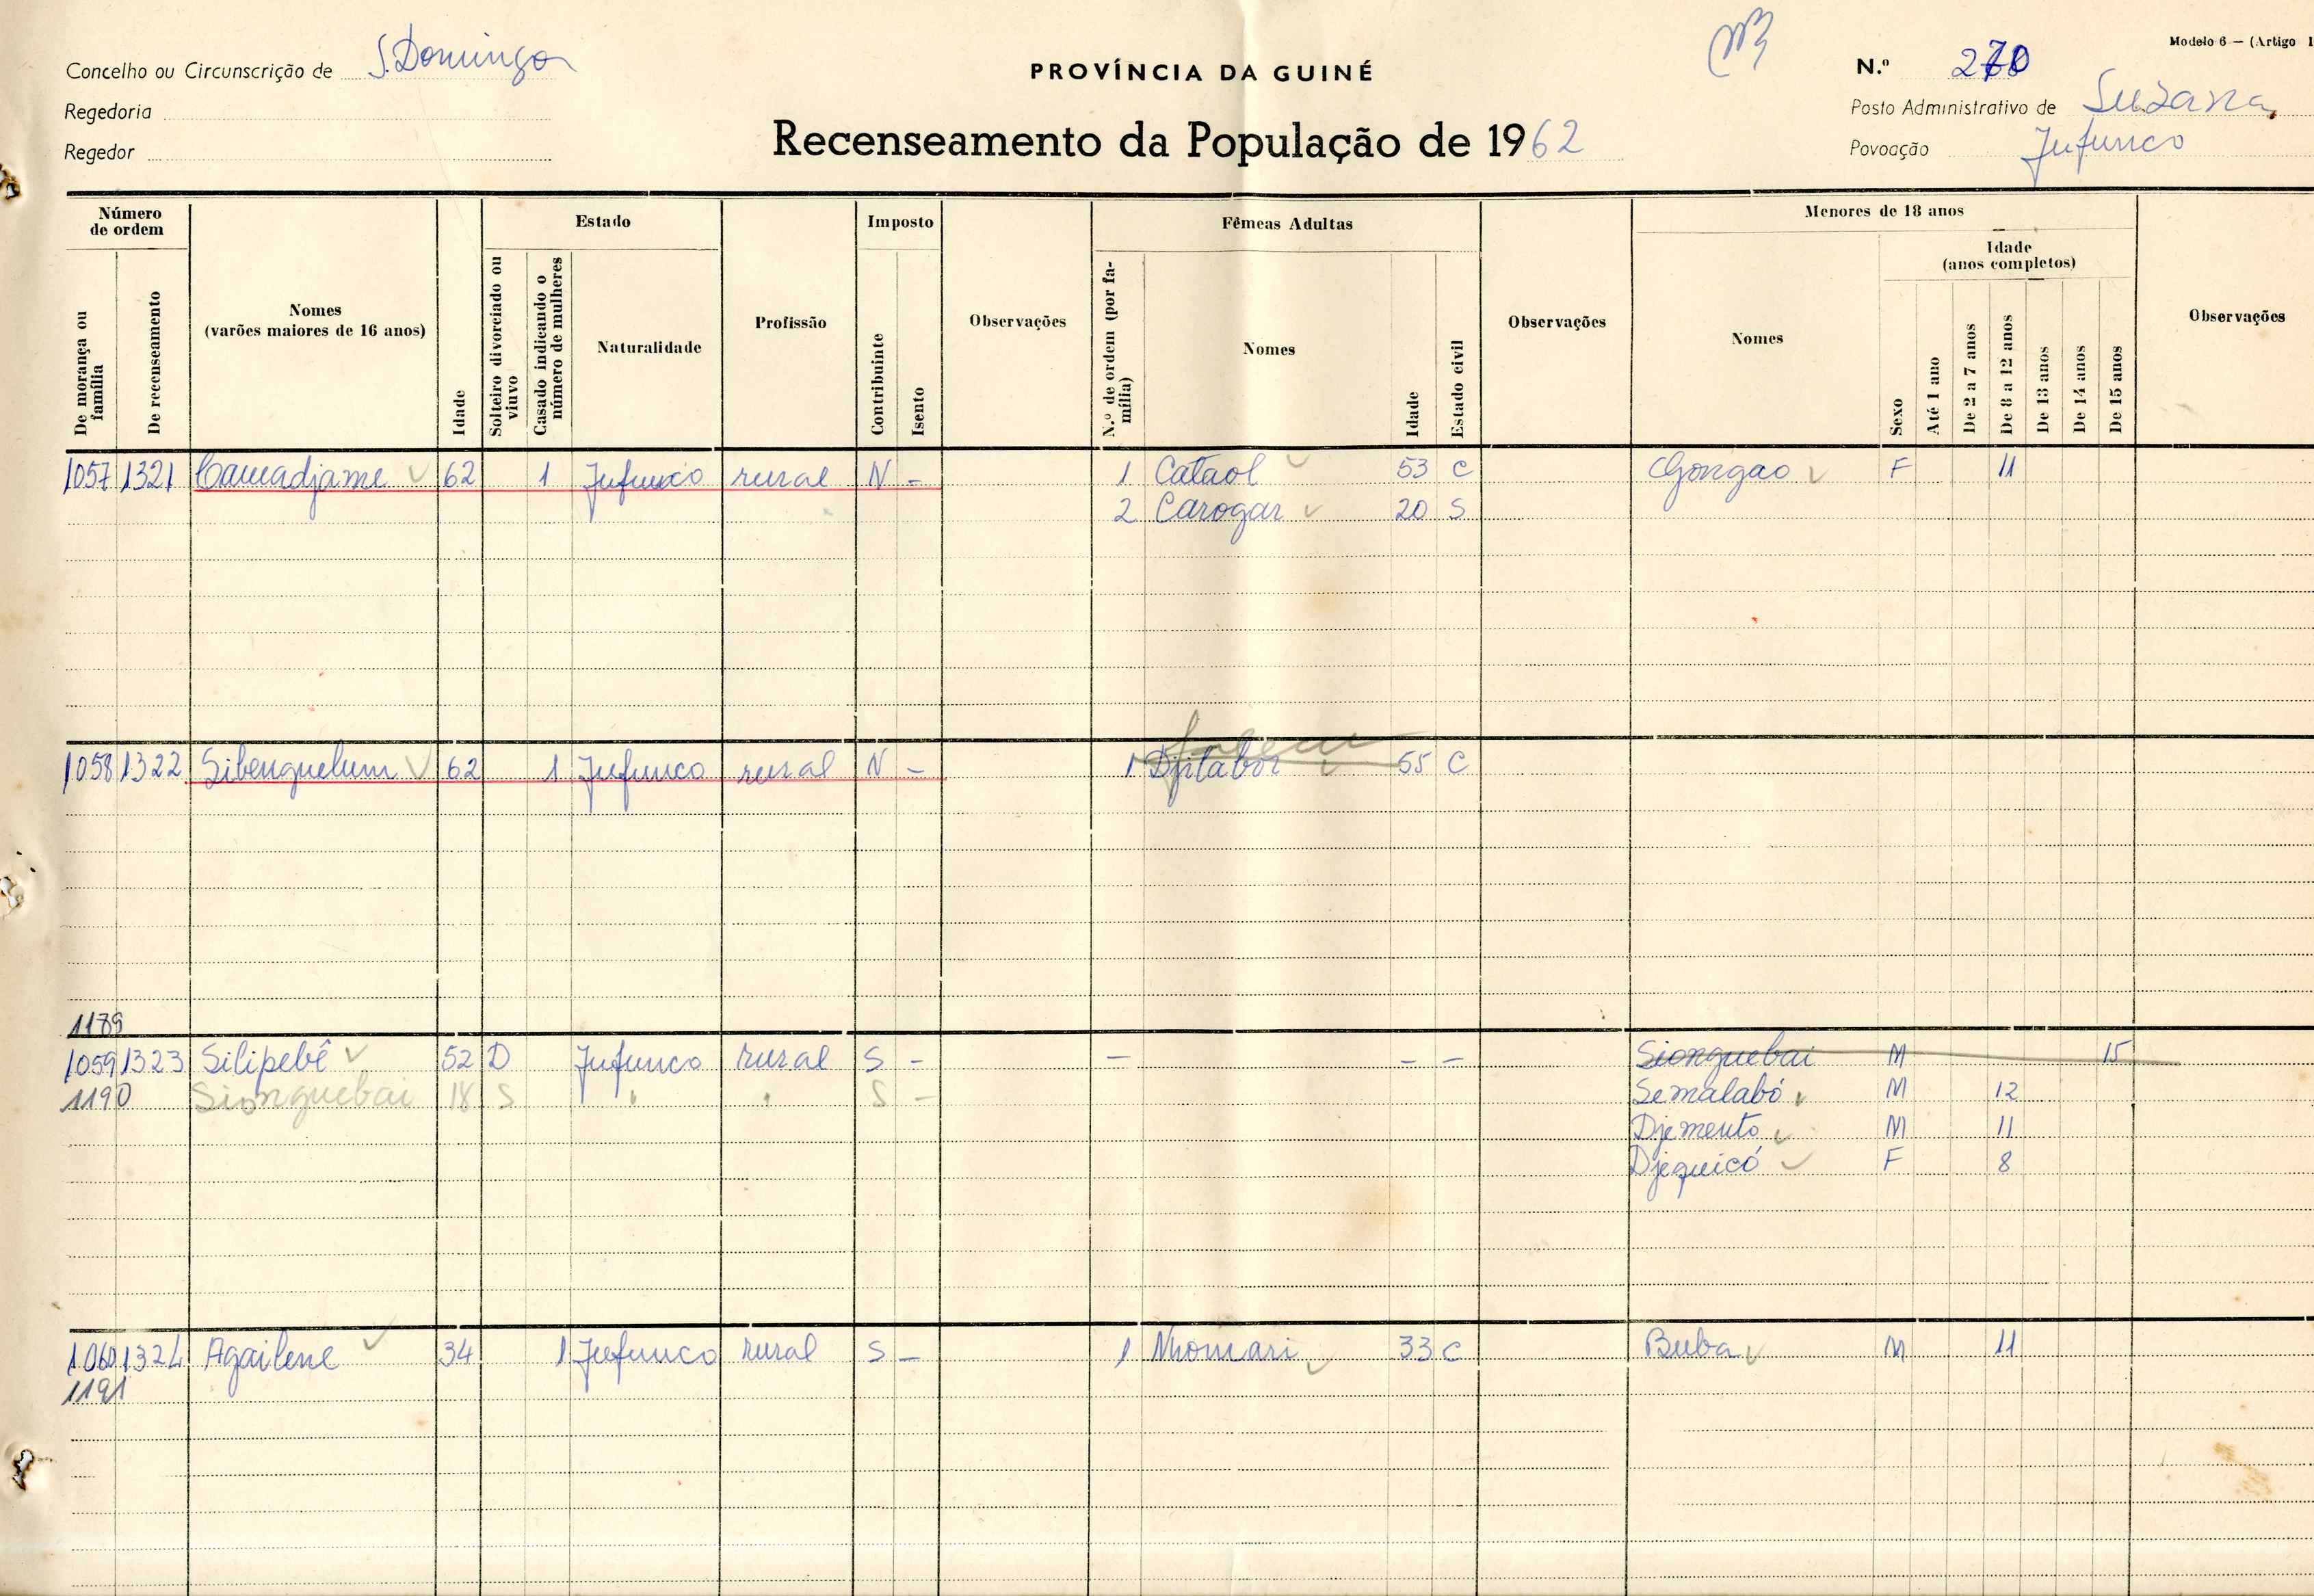 Modelo 6 — (Artigo 1
Concelho ou Circunscrição de S. Domingos
PROVÍNCIA DA GUINÉ
N.º
Regedoria
Posto Administrativo de Suzana
Regedor
Recenseamento da População de 1962
Povoação Jufunco
Número de ordem
De morança ou família
De recenseamento
Nomes
(varões maiores de 16 anos)
Idade
Estado
Solteiro divorciado ou viuvo
Casado indicando o número de mulheres
Naturalidade
Profissão
Imposto
Contribuinte
Isento
Observações
Fêmeas Adultas
N.º de ordem (por família)
Nomes
Idade
Estado civil
Observações
Menores de 18 anos
Nomes
Sexo
Idade
(anos completos)
Até 1 ano
De 2 a 7 anos
De 8 a 12 anos
De 13 anos
De 14 anos
De 15 anos
Observações
1057 1321 Camadjame 62 1 Jufunco rural N - 1 Cataol 53 C Gongao F 11
2 Carogar 20 S
1058 1322 Sibenguelum 62 1 Jufunco rural N - 1 Djitabor 55 C
1189
1059 1323 Silipebê 52 D Jufunco rural S - — - - Sionguebai M 15
1190 Sionguebai 18 S " " S - Semalabó M 12
Djemento M 11
Djequicó F 8
1060 1324 Agailene 34 1 Jufunco rural S - 1 Nhomari 33 C Buba M 11
1191